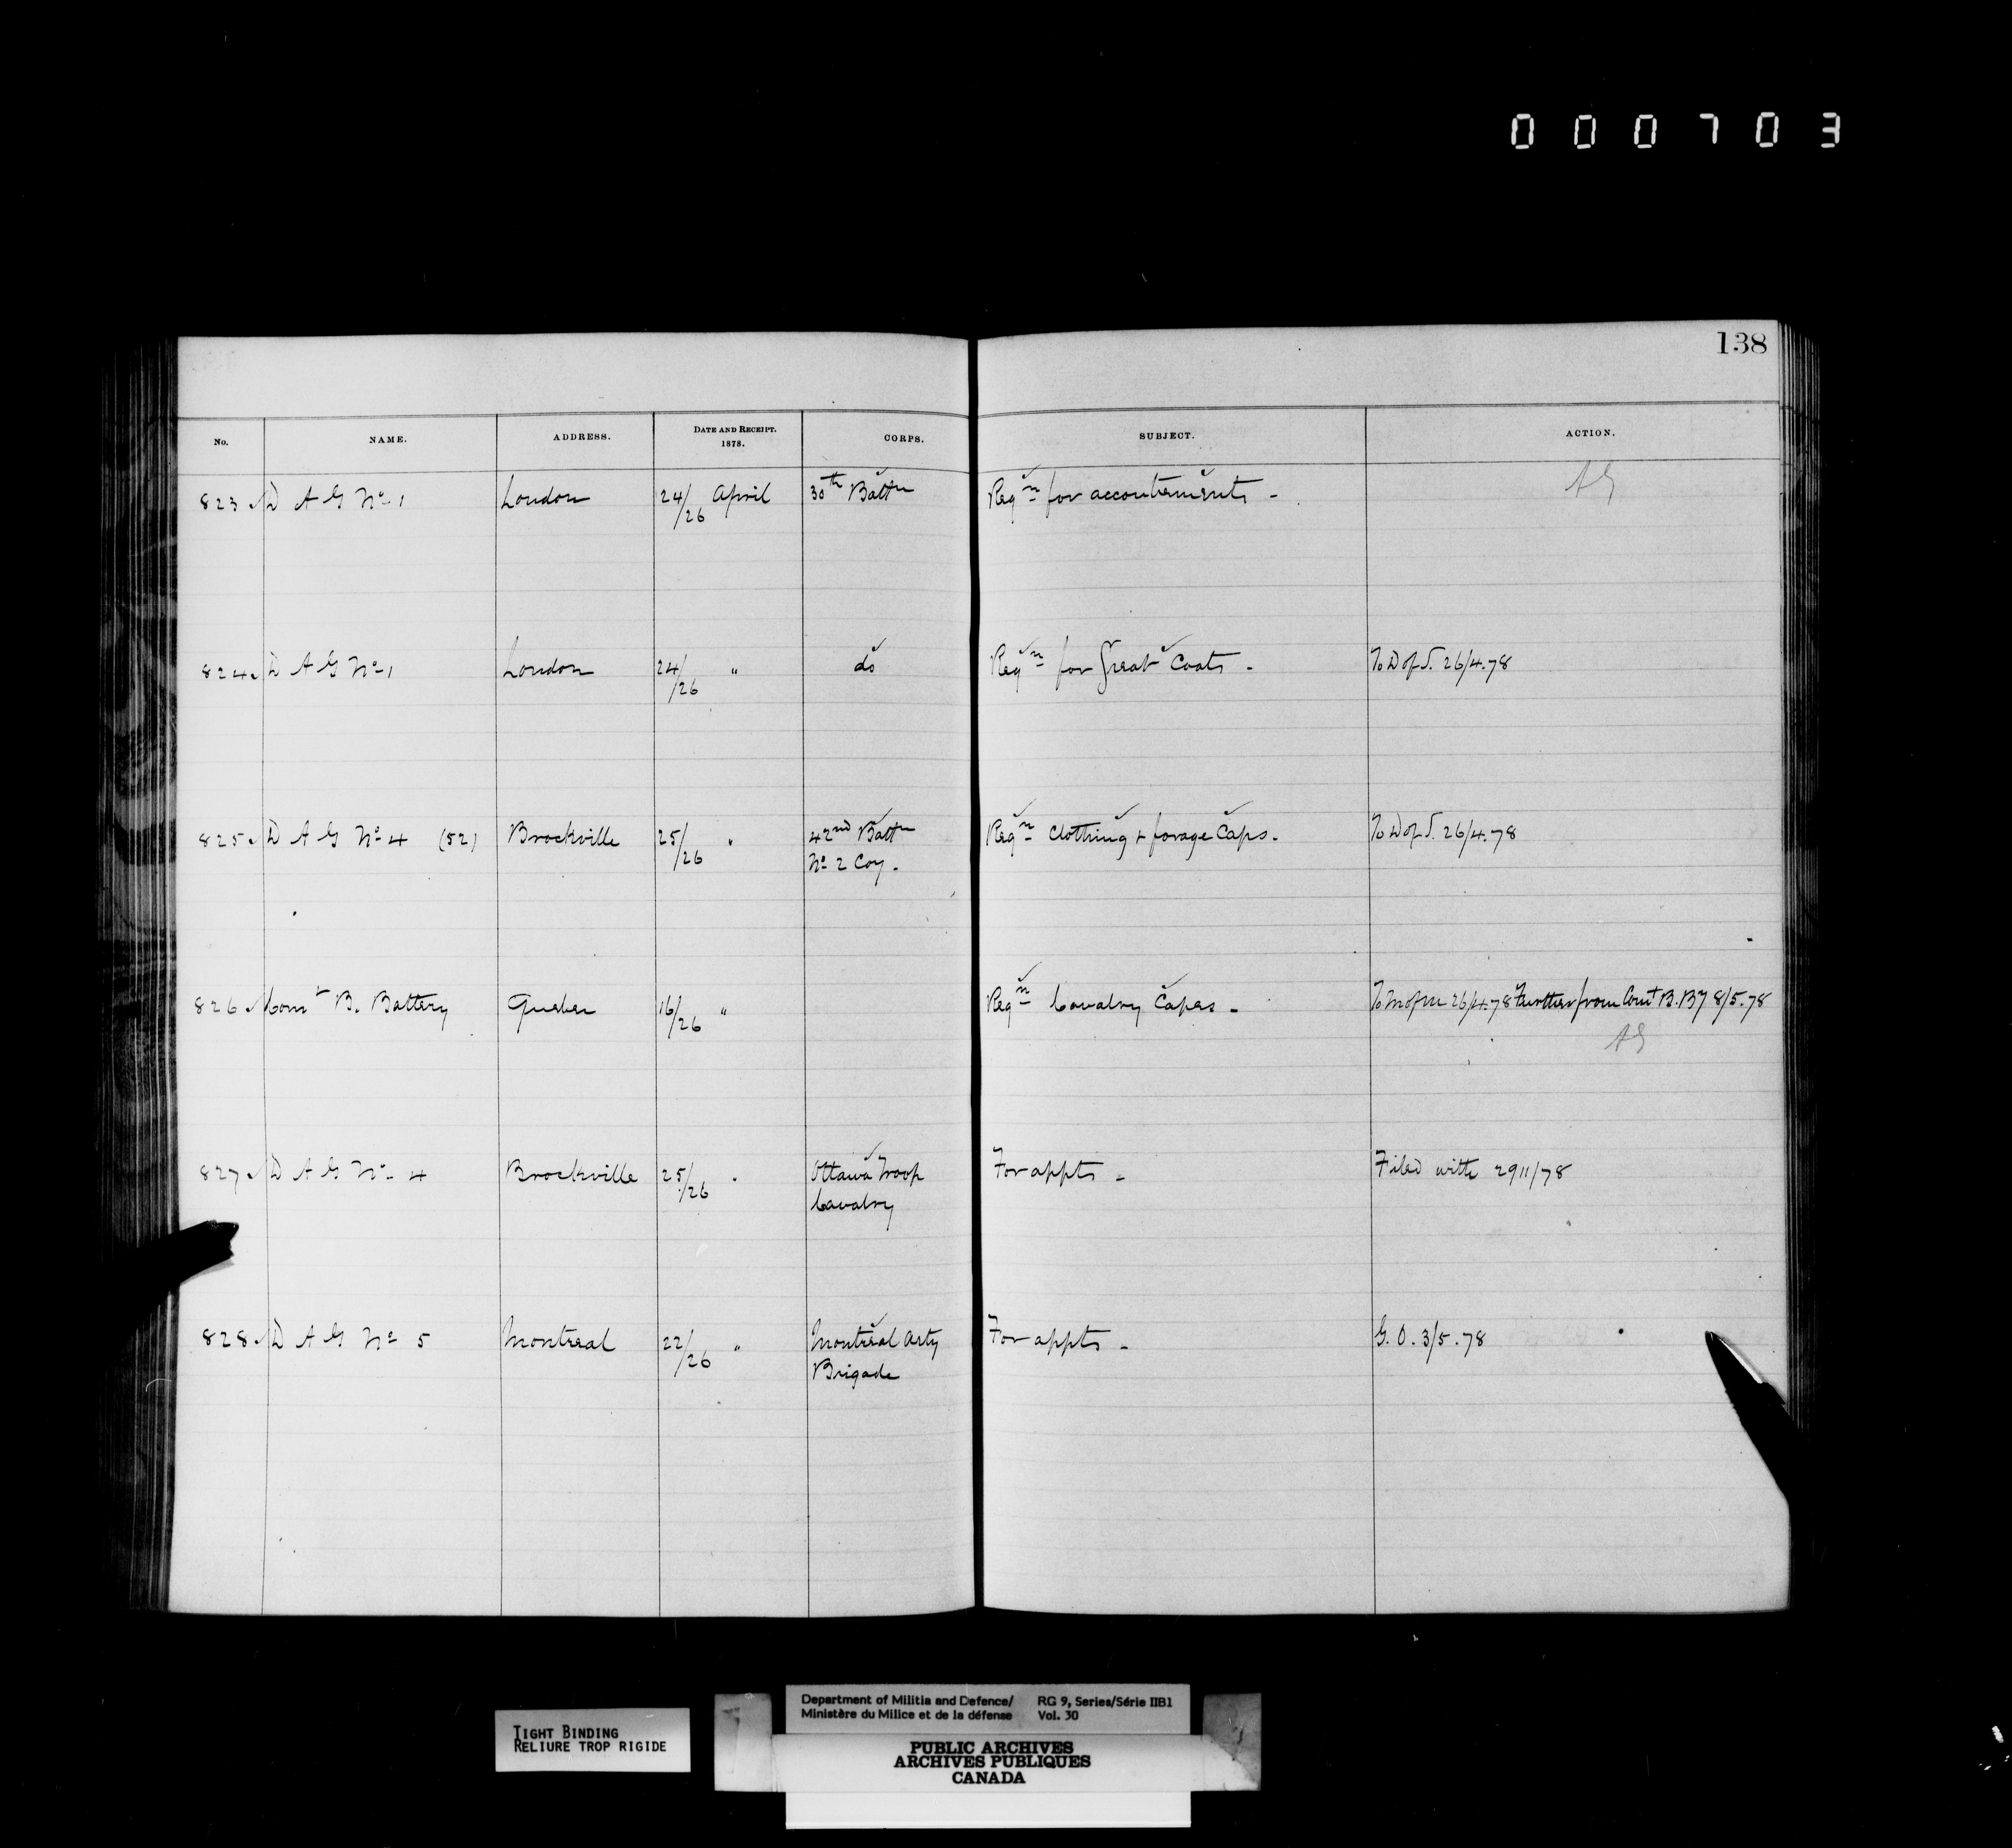 000703
138
No. NAME. ADDRESS. DATE AND RECEIPT. 1878. CORPS. SUBJECT. ACTION.
823 D A G No 1 London 24/26 April 30th Battn Reqn for accoutrements - AG
824 D A G No 1 London 24/26 " do Reqn for Great Coats - To D of S. 26/4.78
825 D A G No 4 (52) Brockville 25/26 " 42nd Battn Reqn Clothing + forage Caps. To D of S. 26/4.78
No 2 Coy.
826 Comt B. Battery Quebec 16/26 " Reqn Cavalry Capes - To M of M 26/4.78 Further from Comt B. By 8/5.78
AG
827 D A G No 4 Brockville 25/26 " Ottawa Troop For appts - Filed with 2911/78
Cavalry
828 D A G No 5 Montreal 22/26 " Montreal Arty For appts - G.O. 3/5.78
Brigade
TIGHT BINDING
RELIURE TROP RIGIDE
Department of Militia and Defence/ RG 9, Series/Série IIB1
Ministère du Milice et de la défense Vol. 30
PUBLIC ARCHIVES
ARCHIVES PUBLIQUES
CANADA